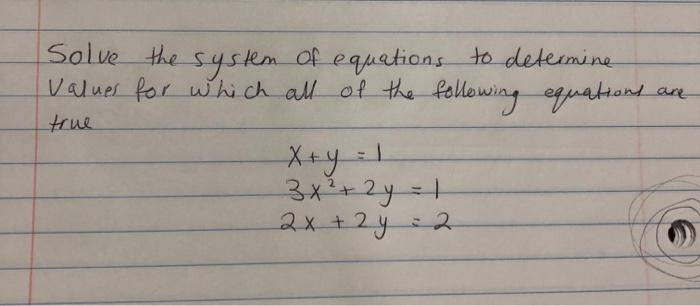 Solve the system of equations to determine
Values for which all of the following equations are
true
x + y = 1
3x² + 2y = 1
2x + 2y = 2